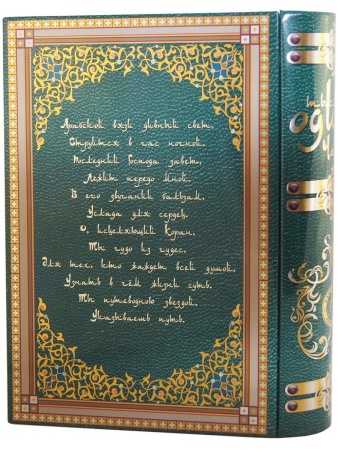 Арабской вязи дивный свет,
Струится в час ночной.
Последний Господа завет,
Лежит передо мной.
В его звучании бальзам,
Услада для сердец.
О, исцеляющий Коран,
Ты чудо из чудес.
Для тех, кто жаждет всей душой,
Узнать в чём жизни суть.
Ты путеводною звездой,
Указываешь путь.